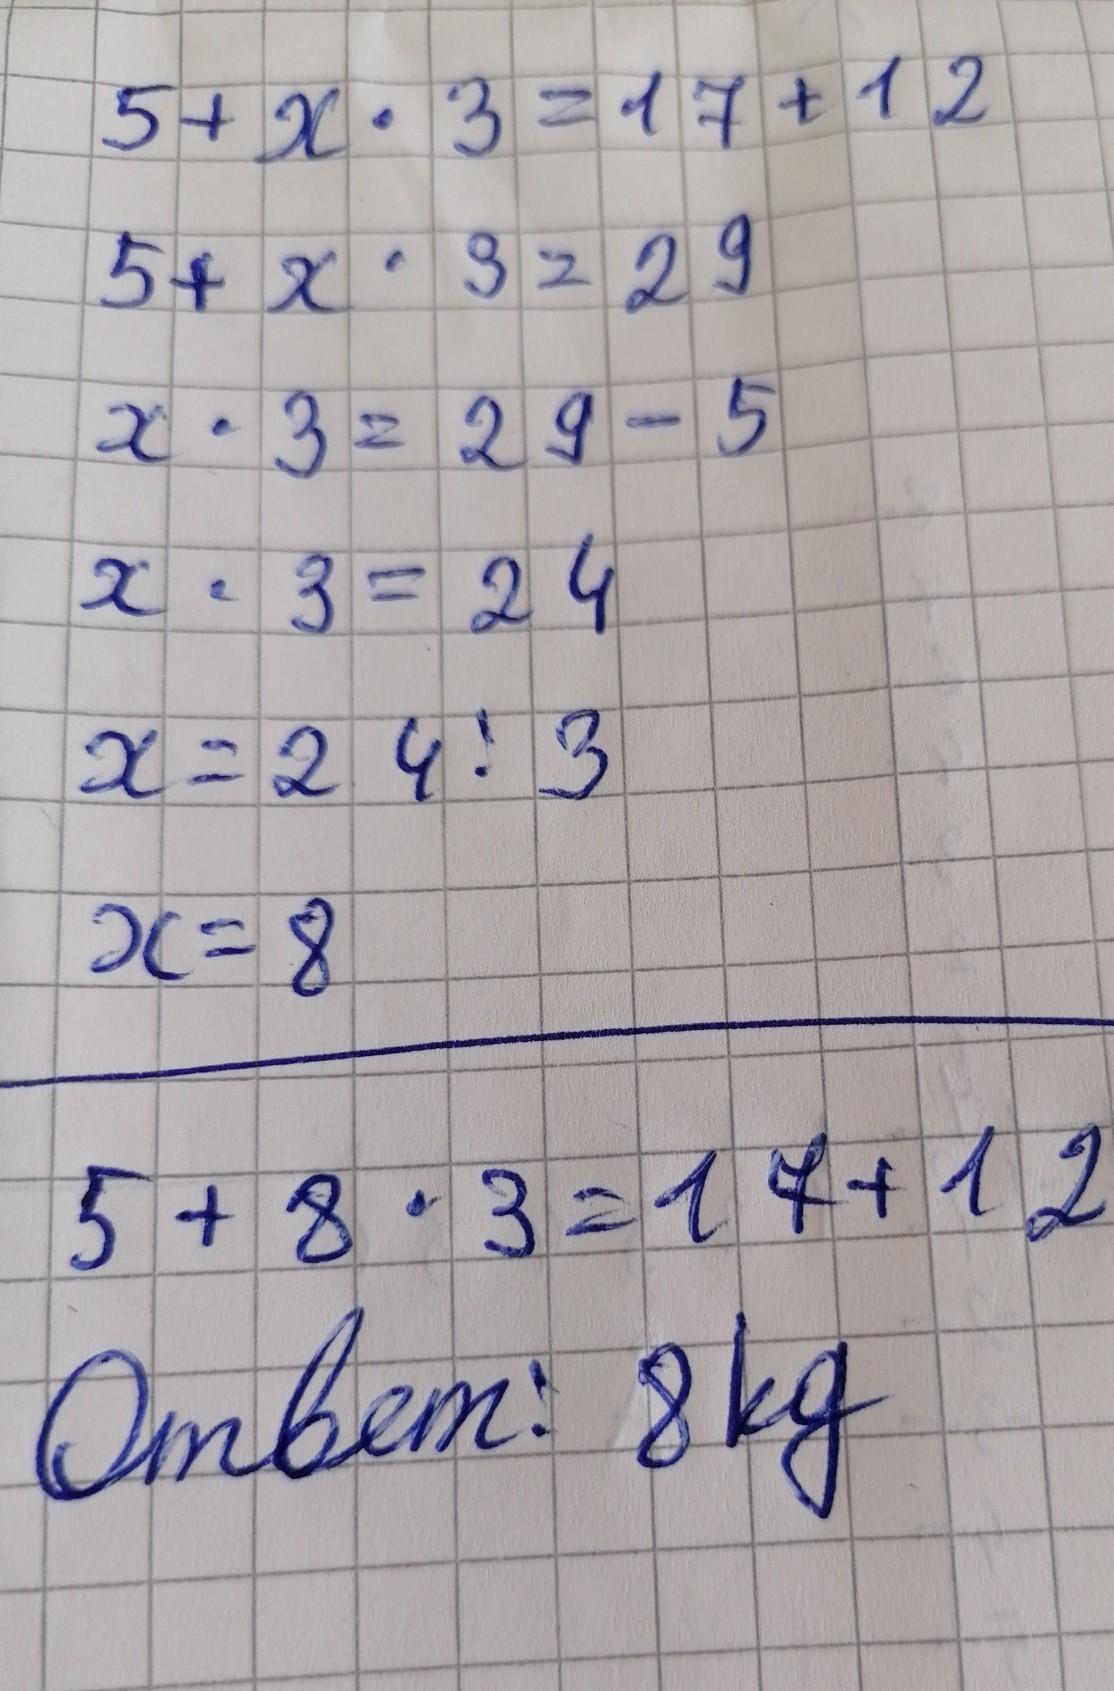 5 + x · 3 = 17 + 12
5 + x · 3 = 29
x · 3 = 29 - 5
x · 3 = 24
x = 24 : 3
x = 8
5 + 8 · 3 = 17 + 12
Ответ: 8 kg